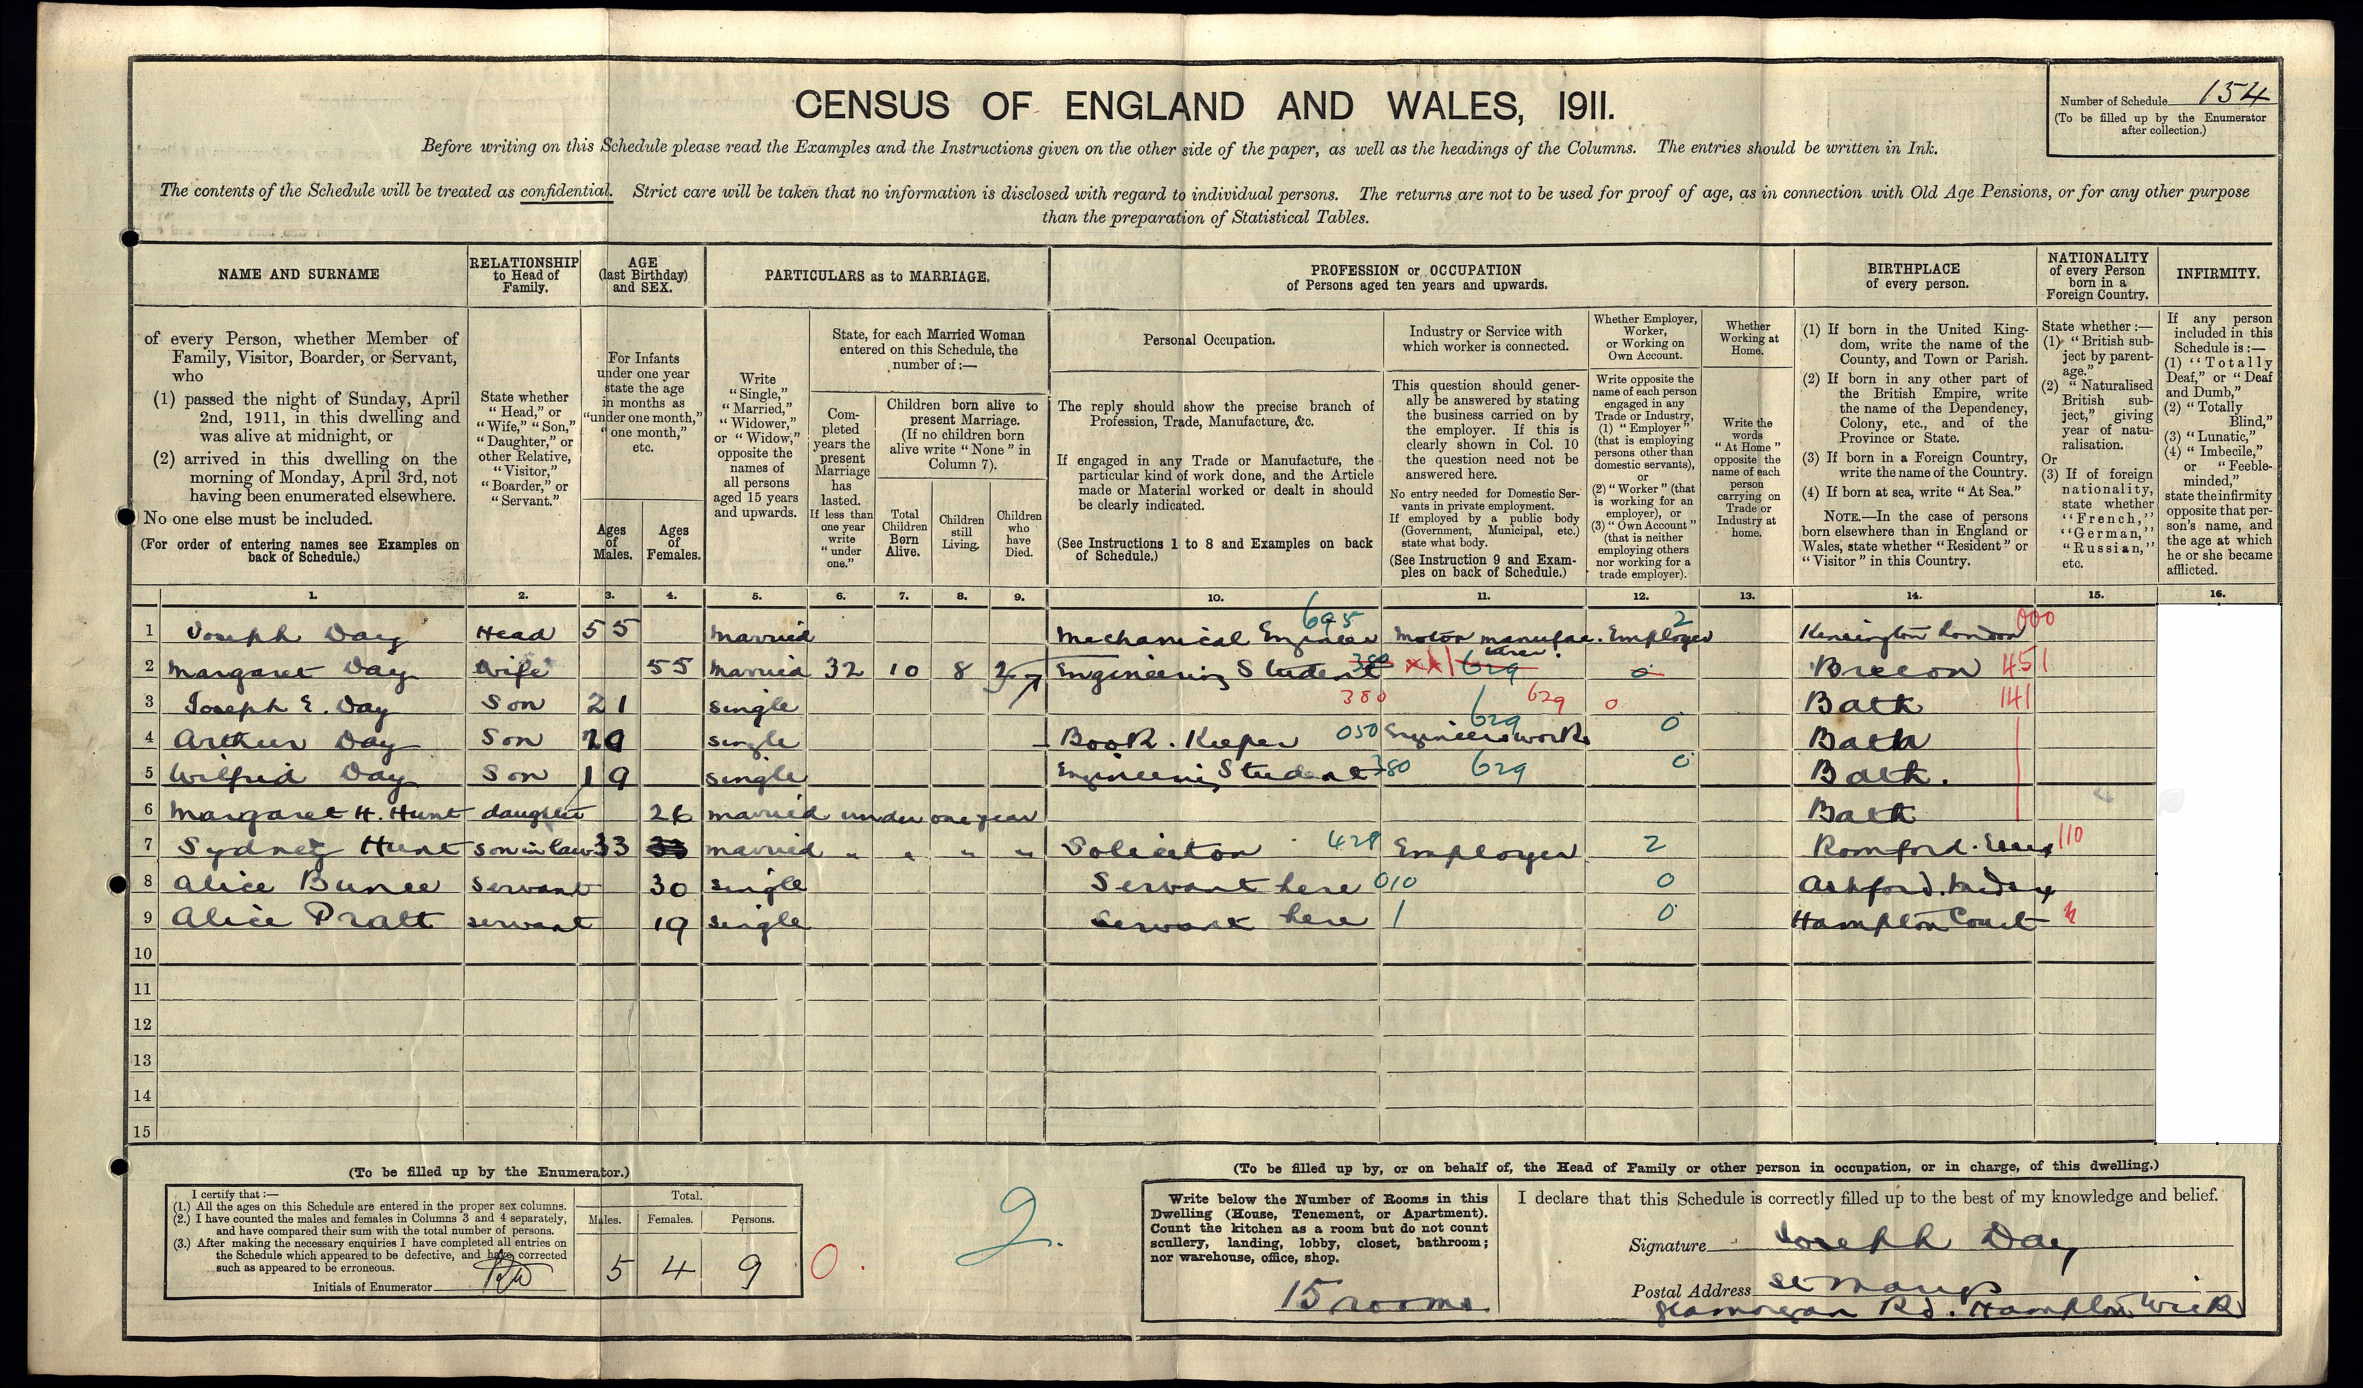 CENSUS OF ENGLAND AND WALES, 1911.
Number of Schedule 154
(To be filled up by the Enumerator
after collection.)
Before writing on this Schedule please read the Examples and the Instructions given on the other side of the paper, as well as the headings of the Columns. The entries should be written in Ink.
The contents of the Schedule will be treated as confidential. Strict care will be taken that no information is disclosed with regard to individual persons. The returns are not to be used for proof of age, as in connection with Old Age Pensions, or for any other purpose
than the preparation of Statistical Tables.
NAME AND SURNAME
of every Person, whether Member of
Family, Visitor, Boarder, or Servant,
who
(1) passed the night of Sunday, April
2nd, 1911, in this dwelling and
was alive at midnight, or
(2) arrived in this dwelling on the
morning of Monday, April 3rd, not
having been enumerated elsewhere.
No one else must be included.
(For order of entering names see Examples on
back of Schedule.)
RELATIONSHIP
to Head of
Family.
State whether
"Head," or
"Wife," "Son,"
"Daughter," or
other Relative,
"Visitor,"
"Boarder," or
"Servant."
AGE
(last Birthday)
and SEX.
For Infants
under one year
state the age
in months as
"under one month,"
"one month,"
etc.
Ages
of
Males.
Ages
of
Females.
PARTICULARS as to MARRIAGE.
Write
"Single,"
"Married,"
"Widower,"
or "Widow,"
opposite the
names of
all persons
aged 15 years
and upwards.
State, for each Married Woman
entered on this Schedule, the
number of:—
Com-
pleted
years the
present
Marriage
has
lasted.
If less than
one year
write
"under
one."
Children born alive to
present Marriage.
(If no children born
alive write "None" in
Column 7).
Total
Children
Born
Alive.
Children
still
Living.
Children
who
have
Died.
PROFESSION or OCCUPATION
of Persons aged ten years and upwards.
Personal Occupation.
The reply should show the precise branch of
Profession, Trade, Manufacture, &c.
If engaged in any Trade or Manufacture, the
particular kind of work done, and the Article
made or Material worked or dealt in should
be clearly indicated.
(See Instructions 1 to 8 and Examples on back
of Schedule.)
Industry or Service with
which worker is connected.
This question should gener-
ally be answered by stating
the business carried on by
the employer. If this is
clearly shown in Col. 10
the question need not be
answered here.
No entry needed for Domestic Ser-
vants in private employment.
If employed by a public body
(Government, Municipal, etc.)
state what body.
(See Instruction 9 and Exam-
ples on back of Schedule.)
Whether Employer,
Worker,
or Working on
Own Account.
Write opposite the
name of each person
engaged in any
Trade or Industry,
(1) "Employer"
(that is employing
persons other than
domestic servants),
or
(2) "Worker" (that
is working for an
employer), or
(3) "Own Account"
(that is neither
employing others
nor working for a
trade employer).
Whether
Working at
Home.
Write the
words
"At Home"
opposite the
name of each
person
carrying on
Trade or
Industry at
home.
BIRTHPLACE
of every person.
(1) If born in the United King-
dom, write the name of the
County, and Town or Parish.
(2) If born in any other part of
the British Empire, write
the name of the Dependency,
Colony, etc., and of the
Province or State.
(3) If born in a Foreign Country,
write the name of the Country.
(4) If born at sea, write "At Sea."
NOTE.—In the case of persons
born elsewhere than in England or
Wales, state whether "Resident" or
"Visitor" in this Country.
NATIONALITY
of every Person
born in a
Foreign Country.
State whether:—
(1) "British sub-
ject by parent-
age."
(2) "Naturalised
British sub-
ject," giving
year of natu-
ralisation.
Or
(3) If of foreign
nationality,
state whether
"French,"
"German,"
"Russian,"
etc.
INFIRMITY.
If any person
included in this
Schedule is:—
(1) "Totally
Deaf," or "Deaf
and Dumb,"
(2) "Totally
Blind,"
(3) "Lunatic,"
(4) "Imbecile,"
or "Feeble-
minded,"
state the infirmity
opposite that per-
son's name, and
the age at which
he or she became
afflicted.
1. 2. 3. 4. 5. 6. 7. 8. 9. 10. 11. 12. 13. 14. 15. 16.
1 Joseph Day Head 55 Married Mechanical Engineer 695 Motor manufacturer. Employer 2 Kensington London 000
2 Margaret Day Wife 55 Married 32 10 8 2 Engineering Student 380 629 0 Brecon 451
3 Joseph E. Day Son 21 Single 380 629 0 Bath 141
4 Arthur Day Son 20 Single Book. Keeper 050 Engineers works 629 0 Bath
5 Wilfrid Day Son 19 Single Engineering Student 380 629 0 Bath.
6 Margaret H. Hunt daughter 26 married under one year Bath
7 Sydney Hunt son in law 33 33 married " " " " Solicitor 428 Employer 2 Romford. Essex 110
8 Alice Bunce servant 30 single Servant here 010 0 Ashford. Midsx
9 Alice Pratt servant 19 single servant here 1 0 Hampton Court
10
11
12
13
14
15
(To be filled up by the Enumerator.)
I certify that:—
(1.) All the ages on this Schedule are entered in the proper sex columns.
(2.) I have counted the males and females in Columns 3 and 4 separately,
and have compared their sum with the total number of persons.
(3.) After making the necessary enquiries I have completed all entries on
the Schedule which appeared to be defective, and have corrected
such as appeared to be erroneous.
Initials of Enumerator
Total.
Males. Females. Persons.
5 4 9
0.
2.
(To be filled up by, or on behalf of, the Head of Family or other person in occupation, or in charge, of this dwelling.)
Write below the Number of Rooms in this
Dwelling (House, Tenement, or Apartment).
Count the kitchen as a room but do not count
scullery, landing, lobby, closet, bathroom;
nor warehouse, office, shop.
15 rooms
I declare that this Schedule is correctly filled up to the best of my knowledge and belief.
Signature Joseph Day
Postal Address St Marys
Glamorgan Rd. Hampton Wick